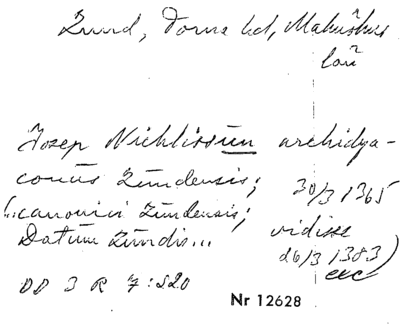 Lund, Domk
Jozep Nichlissun archidya-
conus Lundensis; 30/3 1365
(..canonici Lundensis; vidisse
Datum Lundis... 26/3 1383)
DD 3 R 7:520
Nr 12628